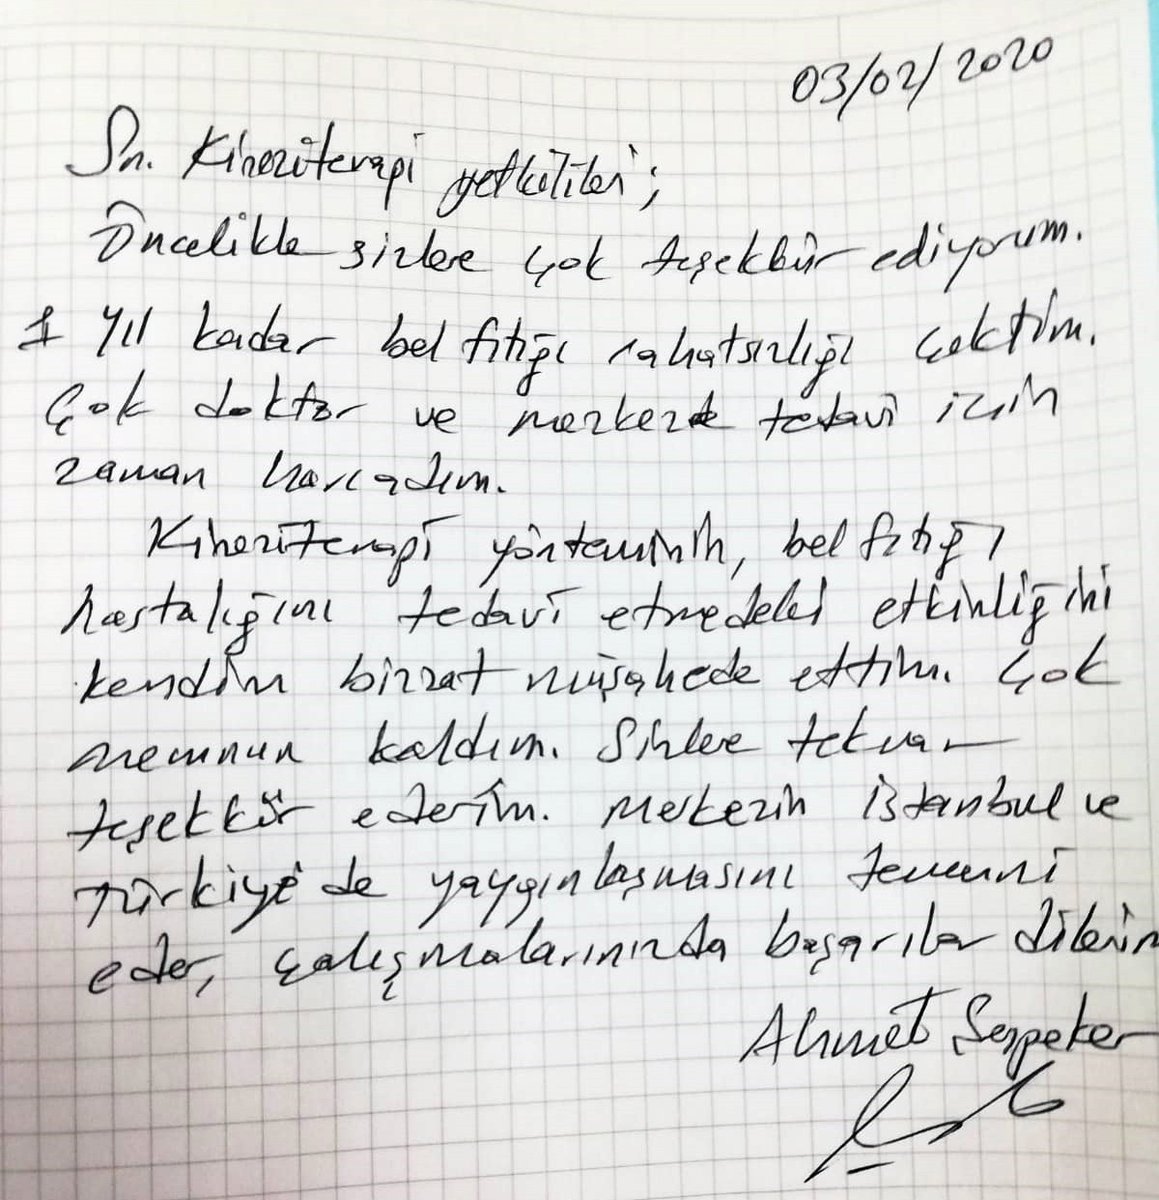 03/02/2020
Sn. Kineziterapi yetkilileri;
Öncelikle sizlere çok teşekkür ediyorum.
1 yıl kadar bel fıtığı rahatsızlığı çektim.
Çok doktor ve merkezde tedavi için
zaman harcadım.
Kineziterapi yönteminin, bel fıtığı
hastalığını tedavi etmedeki etkinliğini
kendim bizzat müşahede ettim. Çok
memnun kaldım. Sizlere tekrar
teşekkür ederim. Merkezin İstanbul ve
Türkiye'de yaygınlaşmasını temenni
eder, çalışmalarınızda başarılar dilerim
Ahmet